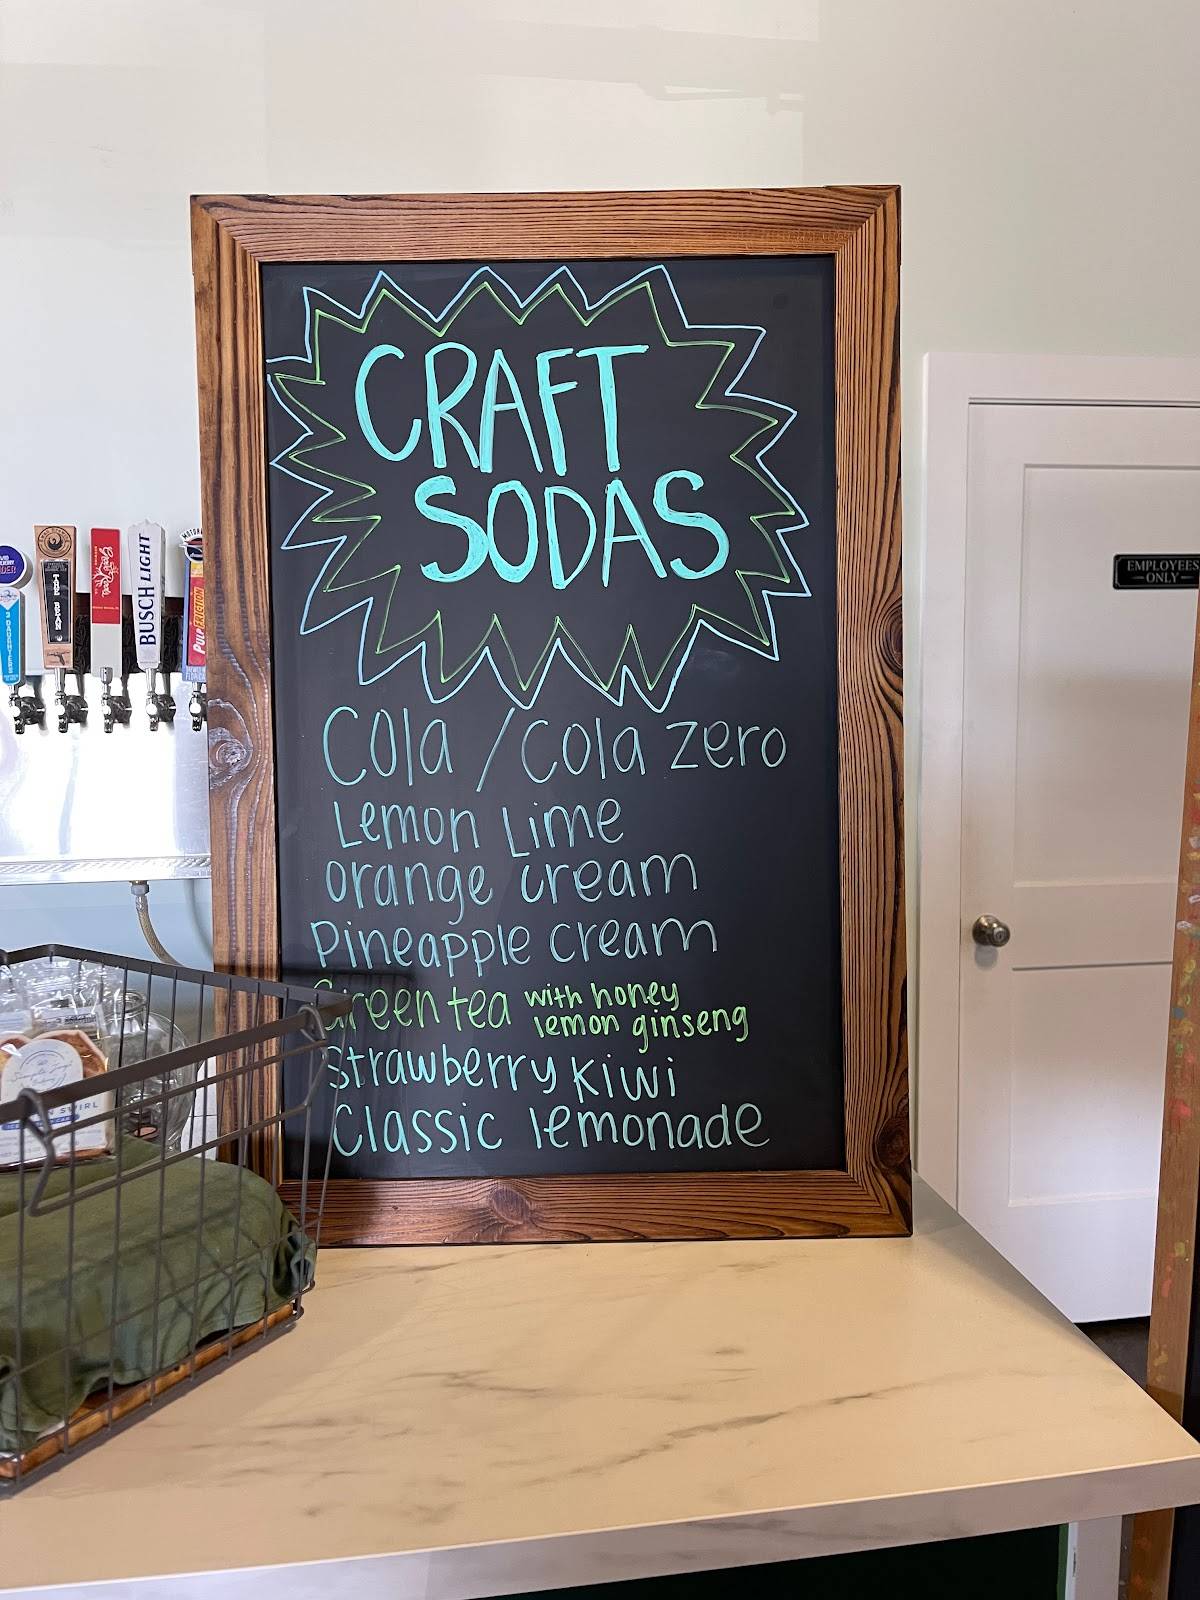 CRAFT
SODAS
Cola / Cola zero
Lemon Lime
orange cream
Pineapple cream
Green tea with honey
lemon ginseng
Strawberry kiwi
Classic lemonade
EMPLOYEES
ONLY
BUSCH LIGHT
PULP FRICTION
3 DAUGHTERS
SWIRL